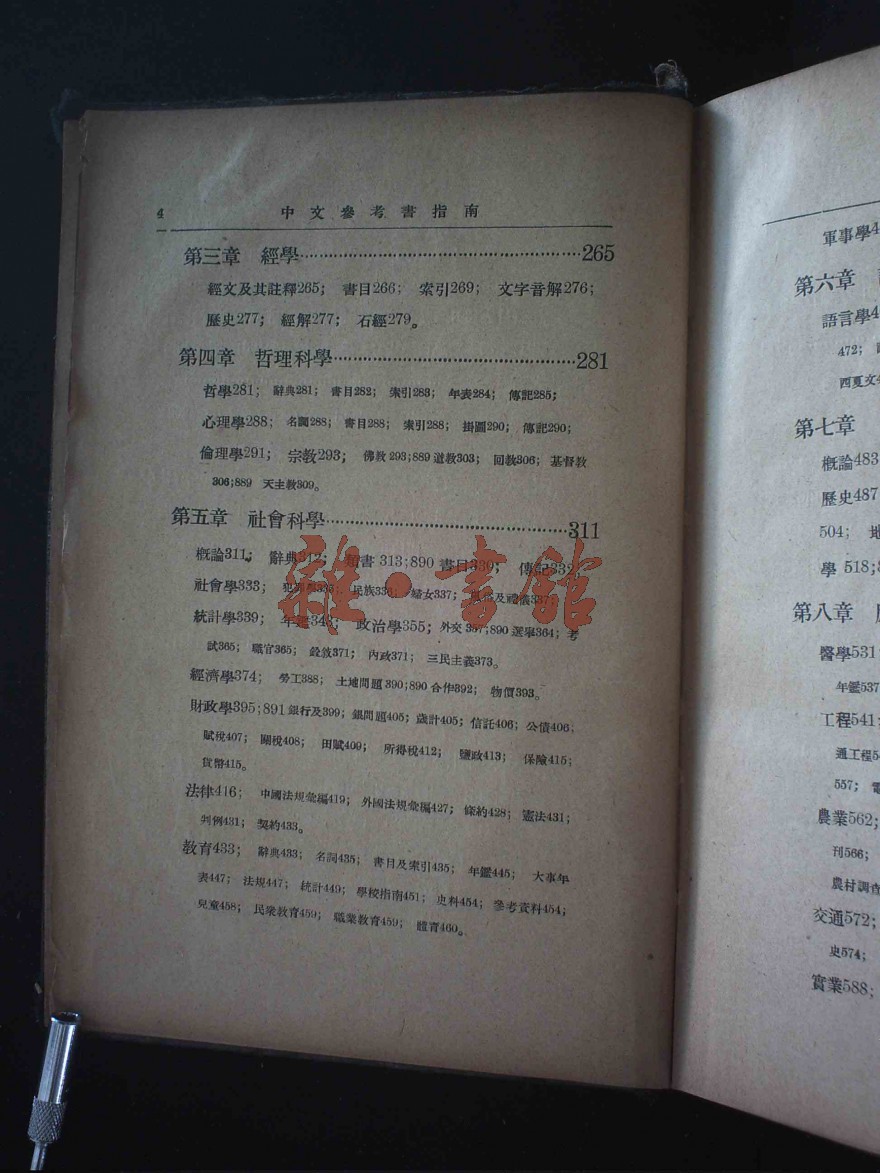 4 中文參考書指南
第三章 經學……265
經文及其註釋265； 書目266； 索引269； 文字音解276；
歷史277； 經解277； 石經279。
第四章 哲理科學……281
哲學281； 辭典281； 書目282； 索引283； 年表284； 傳記285；
心理學288； 名詞288； 書目288； 索引288； 掛圖290； 傳記290；
倫理學291； 宗教293； 佛教293;889 道教303； 回教306； 基督教
306;889 天主教309。
第五章 社會科學……311
概論311， 辭典312； 類書313;890 書目339； 傳記332
社會學333； 民族336； 婦女337； 風俗及禮儀337；
統計學339； 年鑑348； 政治學355； 外交357;890 選舉364； 考
試365； 職官365； 銓敘371； 內政371； 三民主義373。
經濟學374； 勞工388； 土地問題390;890 合作392； 物價393。
財政學395;891 銀行及399； 銀問題405； 歲計405； 信託406； 公債406；
賦稅407； 關稅408； 田賦409； 所得稅412； 鹽政413； 保險415；
貨幣415。
法律416； 中國法規彙編419； 外國法規彙編427； 條約428； 憲法431；
判例431； 契約433。
教育433； 辭典433； 名詞435； 書目及索引435； 年鑑445； 大事年
表447； 法規447； 統計449； 學校指南451； 史料454； 參考資料454；
兒童458； 民衆教育459； 職業教育459； 體育460。
雜·書館
軍事學4
第六章
語言學4
472；
四夏文
第七章
概論483
歷史487
504； 地
學 518;
第八章
醫學531；
年鑑537
工程541；
通工程5
557； 電
農業562；
刊566；
農村調查
交通572；
史574；
實業588；